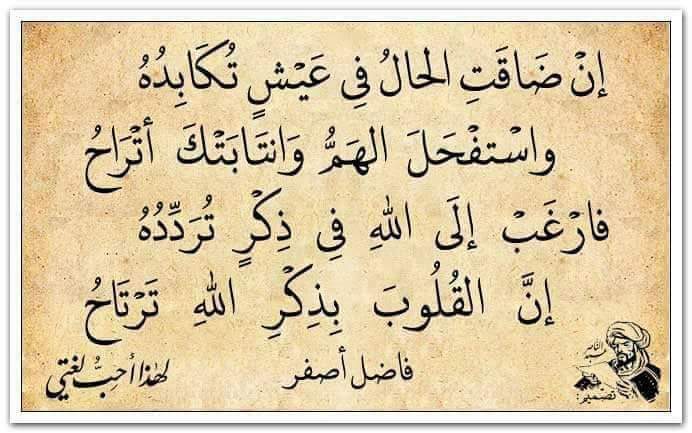 إنْ ضَاقَتِ الحَالُ فِي عَيْشٍ تُكَابِدُهُ
واسْتفْحَلَ الهَمُّ وَانتَابَتْكَ أتْرَاحُ
فارْغَبْ إلَى اللهِ فِي ذِكْرٍ تُرَدِّدُهُ
إنَّ القُلُوبَ بِذِكْرِ اللهِ تَرْتَاحُ
فاضل أصفر
لهٰذا أحبُّ لغتي
الناصر
تصميم: